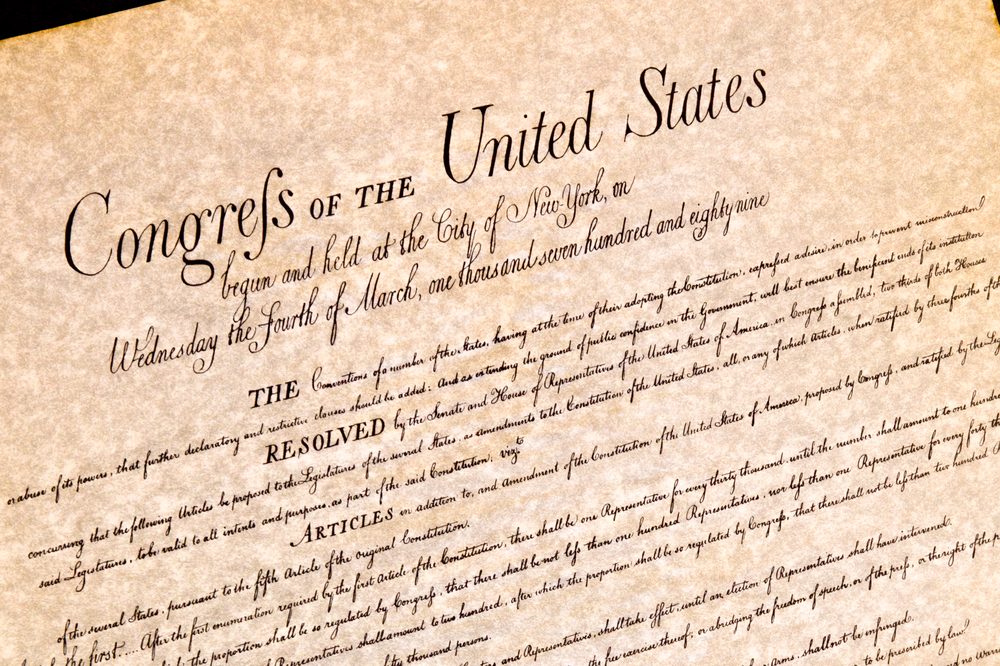 Congreſs OF THE United States
begun and held at the City of New-York, on
Wednesday the Fourth of March, one thousand seven hundred and eighty nine
THE Conventions of a number of the States, having at the time of their adopting the Constitution, expreſsed a desire, in order to prevent misconstruction
or abuse of its powers, that further declaratory and restrictive clauses should be added: And as extending the ground of public confidence in the Government, will best ensure the beneficent ends of its institution
RESOLVED by the Senate and House of Representatives of the United States of America, in Congreſs aſsembled, two thirds of both Houses
concurring that the following Articles be proposed to the Legislatures of the several States, as amendments to the Constitution of the United States, all, or any of which Articles, when ratified by three fourths of the
said Legislatures, to be valid to all intents and purposes, as part of the said Constitution; vizt
ARTICLES in addition to, and amendment of the Constitution of the United States of America, proposed by Congreſs, and ratified by the Leg
of the several States, pursuant to the fifth Article of the original Constitution.
the first..... After the first enumeration required by the first Article of the Constitution, there shall be one Representative for every thirty thousand, until the number shall amount to one hundr
the proportion shall be so regulated by Congreſs, that there shall be not leſs than one hundred Representatives, nor leſs than one Representative for every forty th
Representatives shall amount to two hundred, after which the proportion shall be so regulated by Congreſs, that there shall not be leſs than two hundred
fifty thousand persons.
and Representatives, shall take effect, until an election of Representatives shall have intervened.
the free exercise thereof, or abridging the freedom of speech, or of the preſs, or the right of the p
Arms, shall not be infringed.
to be prescribed by law.
no War